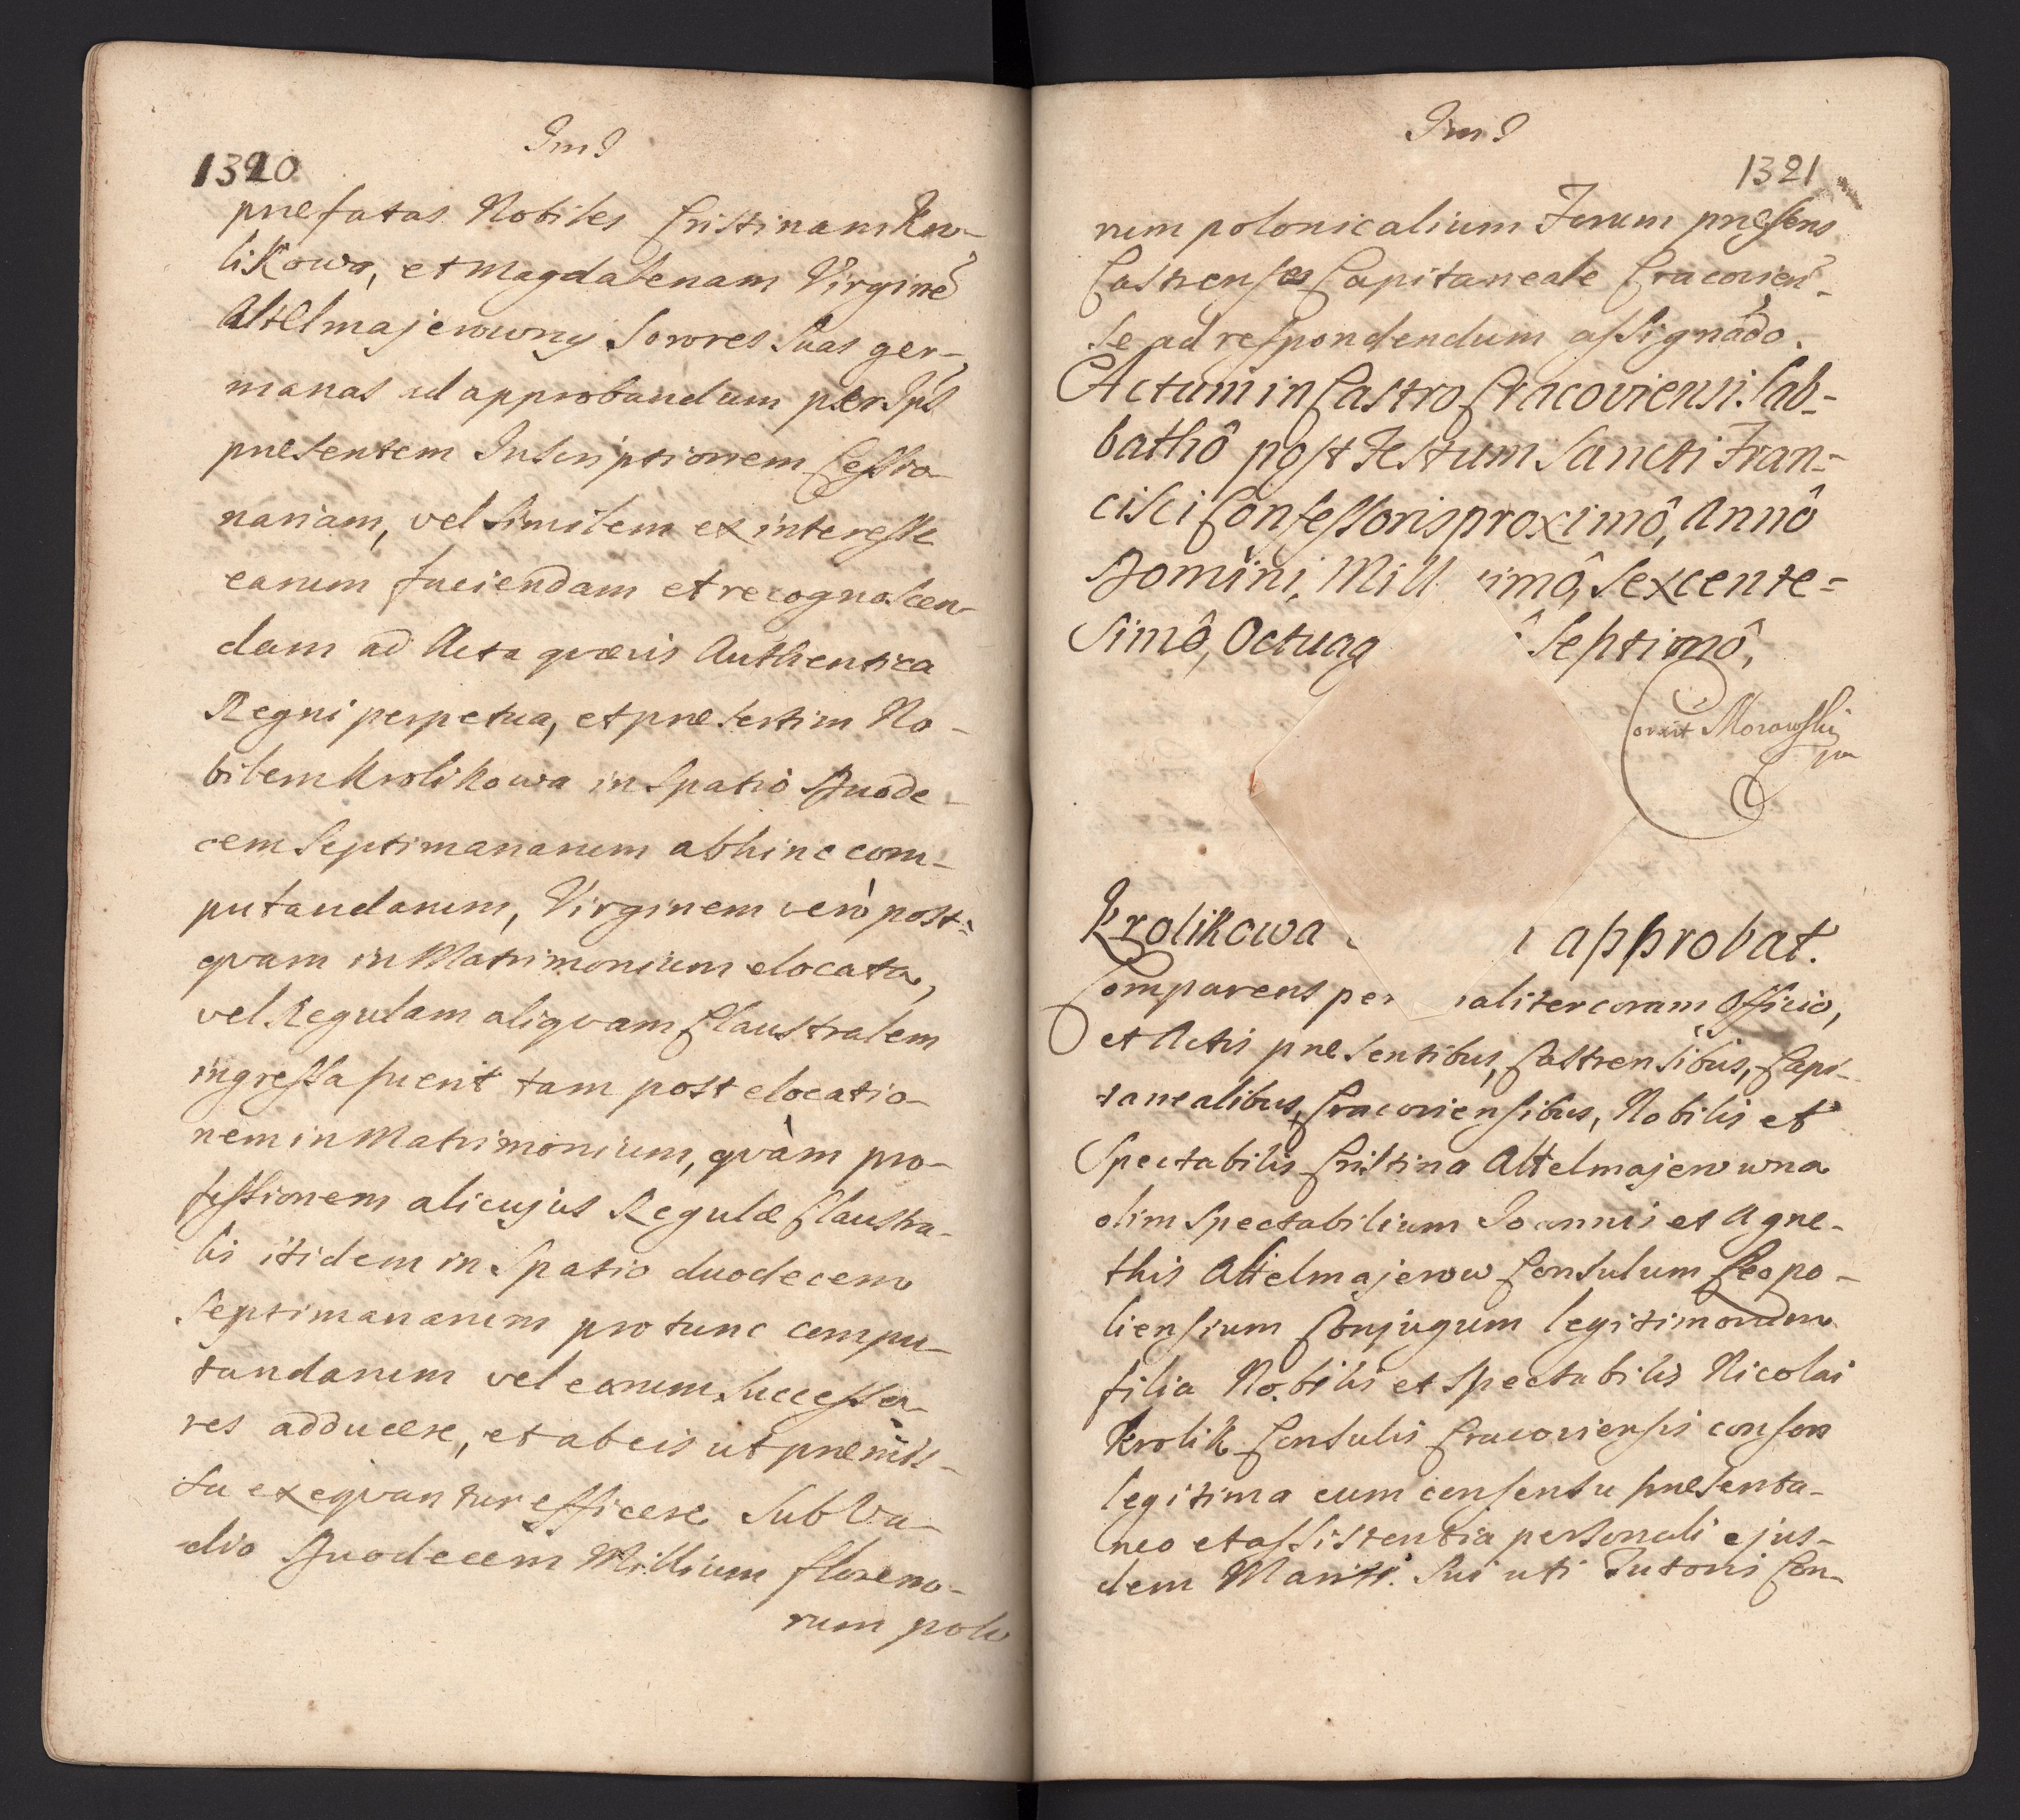 1320
præfatas Nobiles Cristinam Kro-
likowa, et Magdalenam Virginē
Altelmajerowny Sorores suas ger-
manas ad approbandum per Ips
præsentem Inscriptionem Cessio-
nariam, vel similem ex interesse
earum faciendam et recognoscen-
dam ad Acta quævis Authentica
Regni perpetua, et præsertim No-
bilem Krolikowa in spatio Duode-
cem Septimanarum abhinc com-
putandarum, Virginem verò post-
qvam in Matrimonium elocata,
vel Regulam aliqvam Claustralem
ingressa fuerit tam post elocatio-
nem in Matrimonium, qvàm pro-
fessionem alicujus Regulæ Claustra-
lis itidem in spatio duodecem
Septimanarum pro tunc compu-
tandarum vel earum Successo-
res adducere, et ab eis ut præmis-
sa exeqvantur efficere sub Va-
dio Duodecem Millium floreno-
rum polo
1321
rum polonicalium Forum præsens
Castrense Capitaneale Cracovien-
se ad respondendum assignādo.
Actum in Castro Cracoviensi Sab-
bathô post Festum Sancti Fran-
cisci Confessoris proximô, Annô
Domini, Mill imô, Sexcente=
simô, Octuag ô Septimô,
Corrit Morawski
Krolikowa approbat.
Comparens per aliter coram Officio,
et Actis præsentibus, Castrensibus, Capi-
tanealibus, Cracoviensibus, Nobilis et
Spectabilis Cristina Altelmajerowna
olim Spectabilium Joannis et Agne-
this Altelmajerow Consulum Leopo-
liensium Conjugum legitimorum
filia Nobilis et Spectabilis Nicolai
Krolik Consulis Cracoviensis consors
legitima cum consensu præsenta-
neo et assistentia personali ejus-
dem Mariti sui uti Tutoris Con-